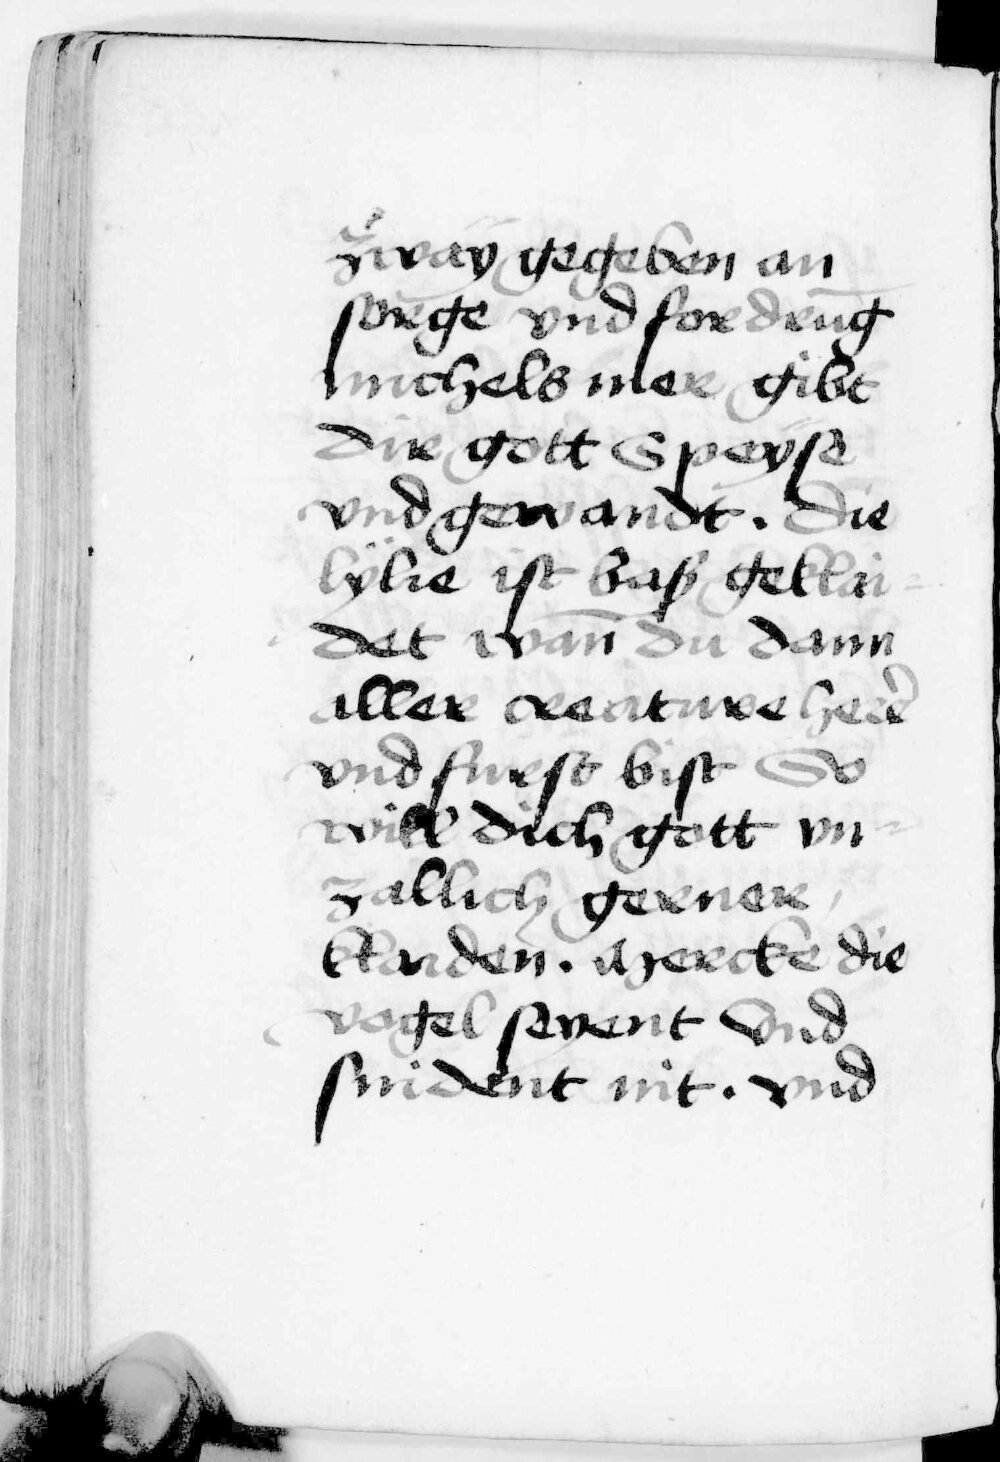 zway gegeben an
sorge vnd fordrūg
michels mer gibt
dir gott Speyse
vnd gewandt. Die
lÿlie ist baß geklai-
det wan̄ du dann
aller creature herr
vnd furst bist So
will dich gott vn-
zallich gerner
klaiden. Mercke die
vogel seyent Vnd
snident nit. vnd